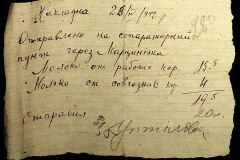 Накладна 28/IV
Отправлено на сепараторный
пункт через Марцинюка
Молоко от рабочих кор. 15,5
Молоко от совхозник ко 4
19,5
Отправил